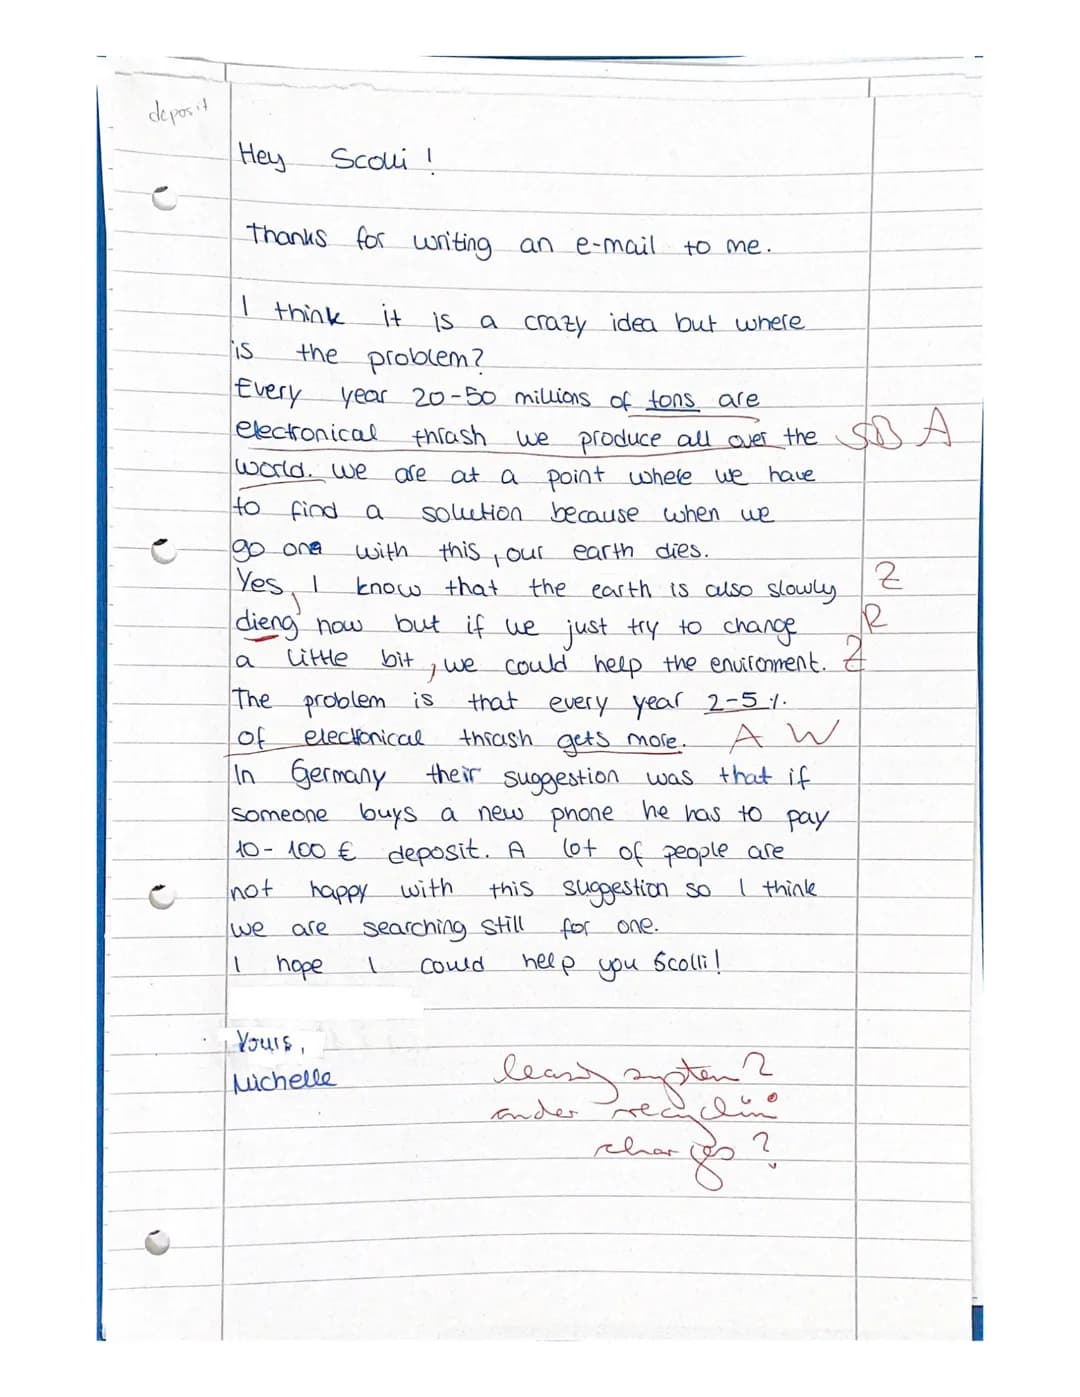 deposit
Hey Scolli !
Thanks for writing an e-mail to me.
I think it is a crazy idea but where
is the problem?
Every year 20-50 millions of tons are
electronical thrash we produce all over the SB A
world. We are at a point where we have
to find a solution because when we
go one with this, our earth dies.
Yes, I know that the earth is also slowly Z
dieng now but if we just try to change R
a little bit, we could help the enviroment. Z
The problem is that every year 2-5 %
of electronical thrash gets more. A W
In Germany their suggestion was that if
someone buys a new phone he has to pay
10-100 € deposit. A lot of people are
not happy with this suggestion so I think
we are searching still for one.
I hope I could help you Scolli!
Yours,
Michelle
system?
charges?